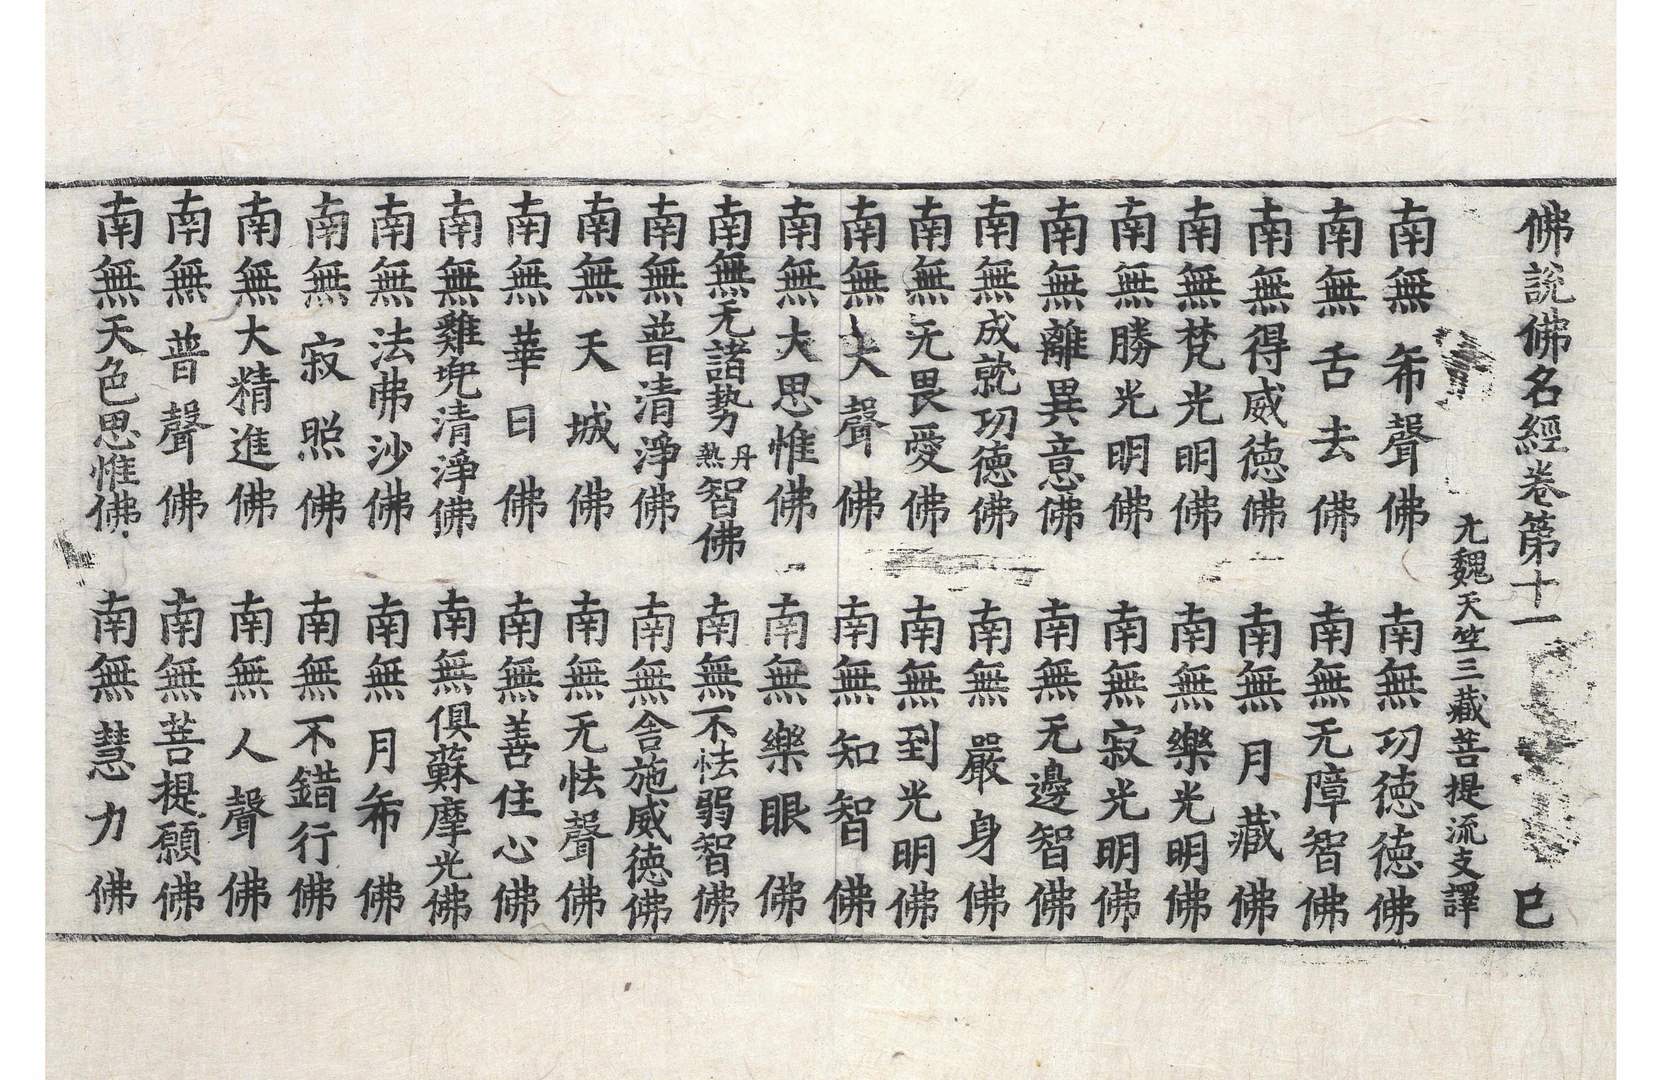 佛說佛名經卷第十一 巳
元魏天竺三藏菩提流支譯
南無希聲佛 南無功德德佛
南無舌去佛 南無无障智佛
南無得威德佛 南無月藏佛
南無梵光明佛 南無樂光明佛
南無勝光明佛 南無寂光明佛
南無離異意佛 南無无邊智佛
南無成就功德佛 南無嚴身佛
南無无畏愛佛 南無到光明佛
南無大聲佛 南無知智佛
南無大思惟佛 南無樂眼佛
南無无諸勢丹熱智佛 南無不怯弱智佛
南無普清淨佛 南無舍施威德佛
南無天城佛 南無无怯聲佛
南無華日佛 南無善住心佛
南無難兜清淨佛 南無俱蘇摩光佛
南無法弗沙佛 南無月希佛
南無寂照佛 南無不錯行佛
南無大精進佛 南無人聲佛
南無普聲佛 南無菩提願佛
南無天色思惟佛 南無慧力佛